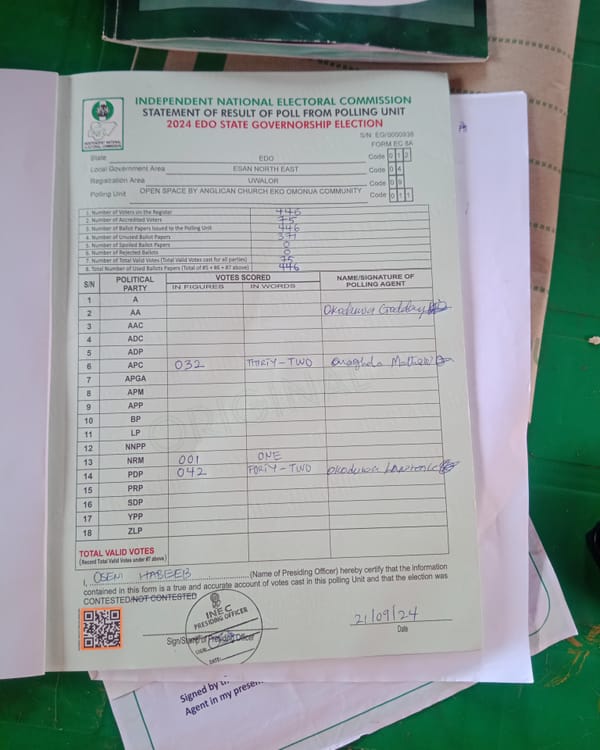 INDEPENDENT NATIONAL ELECTORAL COMMISSION
STATEMENT OF RESULT OF POLL FROM POLLING UNIT
2024 EDO STATE GOVERNORSHIP ELECTION
S/N: EG/0000938
FORM EC 8A
State EDO Code 0 1 2
Local Government Area ESAN NORTH EAST Code 0 4
Registration Area UWALOR Code 0 9
Polling Unit OPEN SPACE BY ANGLICAN CHURCH EKO OMONUA COMMUNITY Code 0 1 1
1. Number of Voters on the Register 446
2. Number of Accredited Voters 75
3. Number of Ballot Papers Issued to the Polling Unit 446
4. Number of Unused Ballot Papers 371
5. Number of Spoiled Ballot Papers 0
6. Number of Rejected Ballots 0
7. Number of Total Valid Votes (Total Valid Votes cast for all parties) 75
8. Total Number of Used Ballots Papers (Total of #5 + #6 + #7 above) 446
S/N POLITICAL PARTY VOTES SCORED NAME/SIGNATURE OF POLLING AGENT
IN FIGURES IN WORDS
1 A
2 AA Okoduwa
3 AAC
4 ADC
5 ADP
6 APC 032 THIRTY-TWO
7 APGA
8 APM
9 APP
10 BP
11 LP
12 NNPP
13 NRM 001 ONE
14 PDP 042 FORTY-TWO Okoduwa
15 PRP
16 SDP
17 YPP
18 ZLP
ORIGINAL
TOTAL VALID VOTES
(Record Total Valid Votes under #7 above)
I, OSENI HABEEB (Name of Presiding Officer) hereby certify that the information
contained in this form is a true and accurate account of votes cast in this polling Unit and that the election was
CONTESTED/NOT CONTESTED
INEC
PRESIDING OFFICER
SIGN:
DATE:
Sign/Stamp of Presiding Officer
21/09/24
Date
Signed by
Agent in my